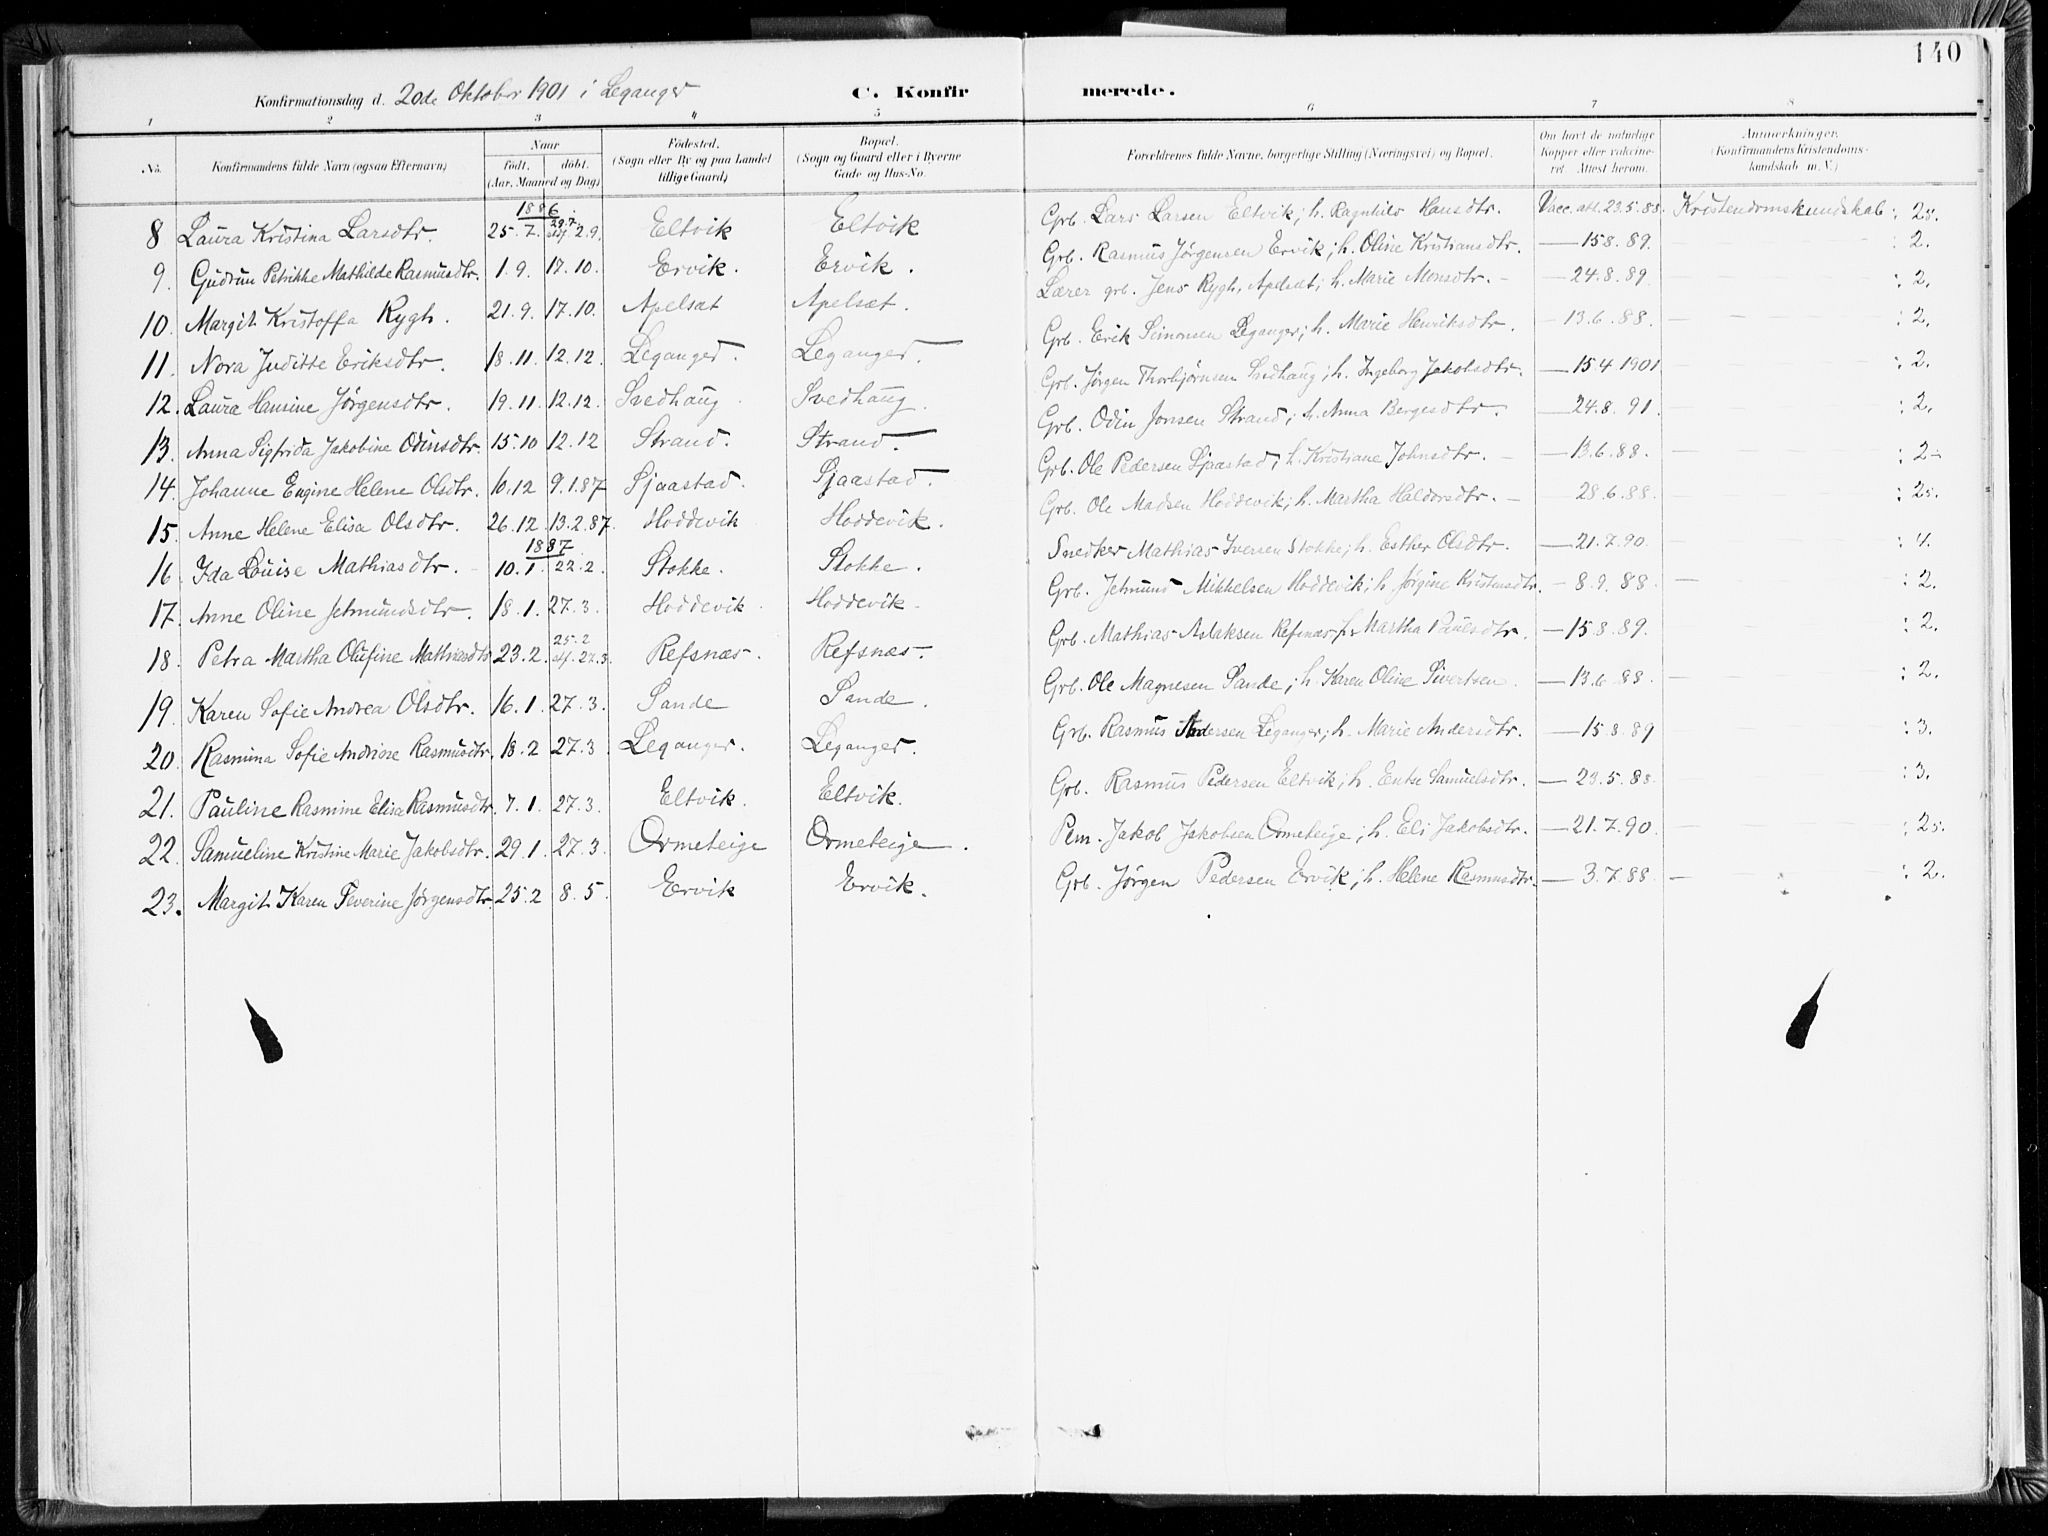 140
Konfirmationsdag d. 20de Oktober 1901 i Leganger C. Konfirmerede.
1 2 3 4 5 6 7 8
No. Konfirmandens fulde Navn (ogsaa Efternavn) Naar født, døbt. (Aar, Maaned og Dag) Fødested. (Sogn eller By og paa Landet tillige Gaard) Bopæl. (Sogn og Gaard eller i Byerne Gade og Hus-No. Forældrenes fulde Navne, borgerlige Stilling (Næringsvei) og Bopæl. Om havt de naturlige Kopper eller vakcineret. Attest herom. Anmærkninger. (Konfirmandens Kristendomskundskab m. V.)
1886
8 Laura Kristina Larsdtr. 25.7. 29.7. stf. 2.9. Eltvik Eltvik Grb. Lars Larsen Eltvik; h. Ragnhild Hansdtr. Vacc. att. 23.5.88. Kristendomskundskab: 25.
9. Gudrun Petrikke Mathilde Rasmusdtr. 1.9. 17.10. Ervik. Ervik. Grb. Rasmus Jørgensen Ervik; h. Oline Kristiansdtr. — 15.8.89. : 2.
10. Margit Kristoffa Rygh. 21.9. 17.10. Apelsæt Apelsæt. Lærer grb. Jens Rygh, Apelsæt; h. Marie Monsdtr. — 24.8.89. : 2.
11. Nora Juditte Eriksdtr. 18.11. 12.12. Leganger. Leganger. Grb. Erik Simonsen Leganger; h. Marie Henriksdtr. — 13.6.88. : 2.
12. Laura Hansine Jørgensdtr. 19.11. 12.12. Svedhaug Svedhaug. Grb. Jørgen Thorbjørnsen Svedhaug; h. Ingeborg Jakobsdtr. — 15.4.1901 : 2.
13. Anna Sigfrida Jakobine Odinsdtr. 15.10 12.12 Strand. Strand. Grb. Odin Jonsen Strand; h. Anna Bergesdtr. — 24.8.91. : 2.
14. Johanne Engine Helene Olsdtr. 10.12 9.1.87 Sjaastad. Sjaastad. Grb. Ole Pedersen Sjaastad; h. Kristiane Johnsdtr. — 13.6.88. : 2
15. Anne Helene Elisa Olsdtr. 26.12. 13.2.87. Hoddevik Hoddevik. Grb. Ole Madsen Hoddevik; h. Martha Haldorsdtr. — 28.6.88. : 25.
1887
16 Ida Louise Mathiasdtr. 10.1. 22.2. Stokke. Stokke. Snedker Mathias Iversen Stokke; h. Esther Olsdtr. — 21.7.90. : 4.
17. Anne Oline Jetmundsdtr. 18.1. 27.3. Hoddevik. Hoddevik. Grb. Jetmund Mikkelsen Hoddevik; h. Jørgine Kristensdtr. — 8.9.88. : 2.
18. Petra Martha Olufine Mathiasdtr 23.2. 25.2 stf. 27.3. Refsnæs. Refsnæs. Grb. Mathias Aslaksen Refsnæs; h. Martha Paulsdtr. — 15.8.89. : 2.
19. Karen Sofie Andrea Olsdtr. 16.1. 27.3. Sande Sande. Grb. Ole Magnesen Sande; h. Karen Oline Sivertsen. — 13.6.88. : 2.
20. Rasmina Sofie Andrine Rasmusdtr. 18.2 27.3 Leganger. Leganger. Grb. Rasmus Andersen Leganger; h. Marie Andersdtr. — 15.8.89 : 3.
21. Pauline Rasmine Elisa Rasmusdtr. 7.1. 27.3. Eltvik. Eltvik. Grb. Rasmus Pedersen Eltvik; h. Samuelsdtr. — 23.5.88. : 3.
22. Samueline Kristine Marie Jakobsdtr. 29.1. 27.3. Ormeteige Ormeteige. Pem. Jakob Jakobsen Ormeteige; h. Eli Jakobsdtr. — 21.7.90. : 25.
23. Margit Karen Severine Jørgensdtr. 25.2 8.5. Ervik Ervik. Grb. Jørgen Pedersen Ervik; h. Helene Rasmusdtr. — 3.7.88. : 2.